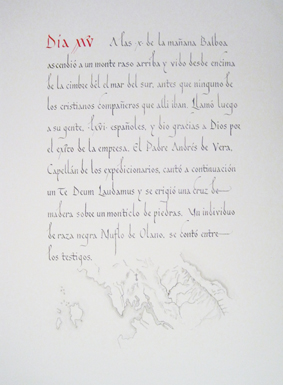 Día XXV A las ·x· de la mañana Balboa
ascendió a un monte raso arriba y vido desde encima
de la cimbre dél el mar del sur, antes que ninguno de
los cristianos compañeros que allí iban. Llamó luego
a su gente, ·lxvi· españoles, y dio gracias a Dios por
el exíto de la empresa. El Padre Andrés de Vera,
Capellán de los expedicionarios, cantó a continuación
un Te Deum Laudamus y se erigió una cruz de
madera sobre un montículo de piedras. Un individuo
de raza negra Nuflo de Olano, se contó entre
los testigos.